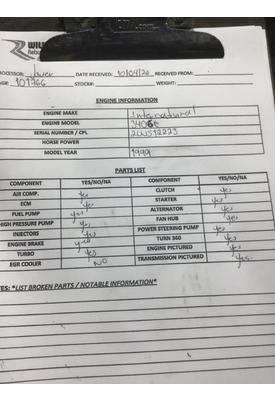 WILL
Rebu
ROCESSOR: Javier DATE RECEIVED: 10/04/20 RECEIVED FROM:
AG#: 101966 STOCK#: WEIGHT:
ENGINE INFORMATION
ENGINE MAKE International
ENGINE MODEL 3406e
SERIAL NUMBER / CPL 2WS12223
HORSE POWER
MODEL YEAR 1999
PARTS LIST
COMPONENT YES/NO/NA COMPONENT YES/NO/NA
AIR COMP. yes CLUTCH yes
ECM yes STARTER yes
FUEL PUMP yes ALTERNATOR yes
HIGH PRESSURE PUMP yes FAN HUB yes
INJECTORS yes POWER STEERING PUMP yes
ENGINE BRAKE yes TURN 360 yes
TURBO yes ENGINE PICTURED yes
EGR COOLER NO TRANSMISSION PICTURED yes
TES: *LIST BROKEN PARTS / NOTABLE INFORMATION*